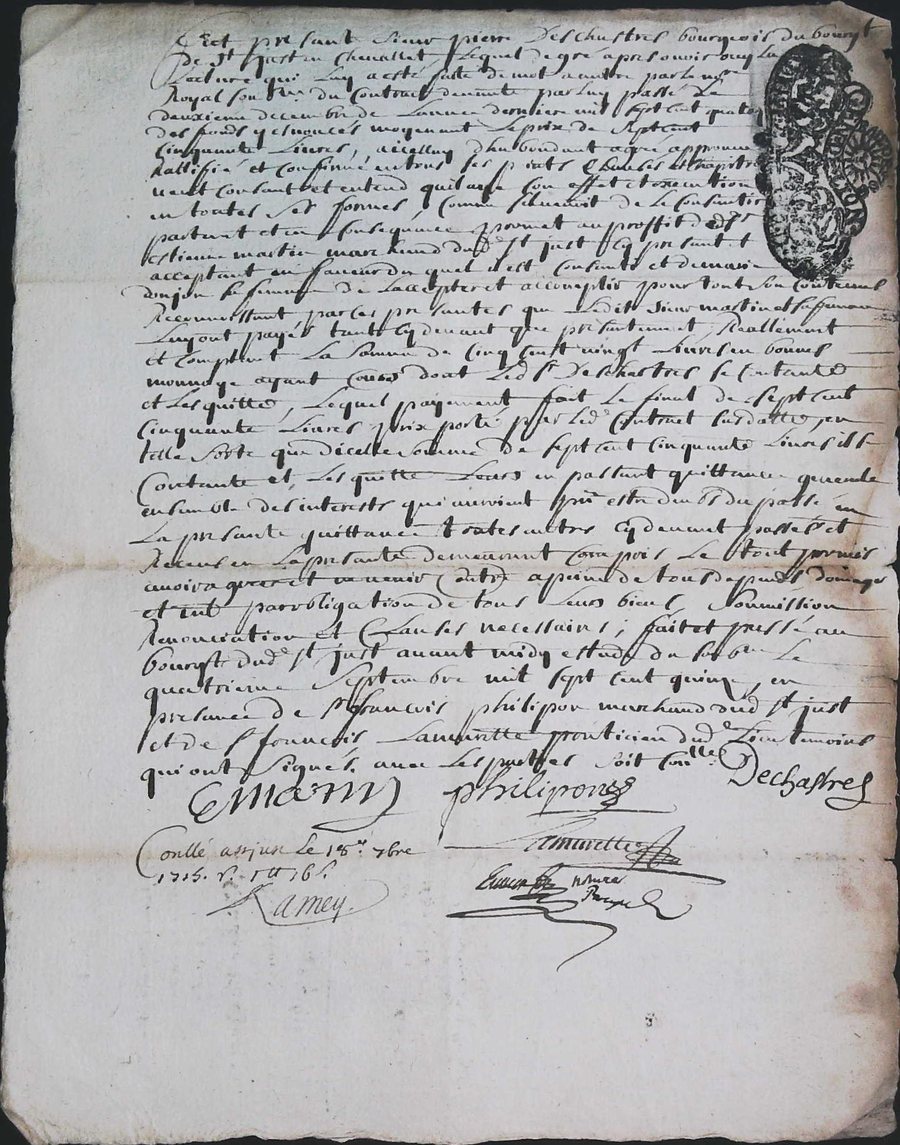 Est présant sieur pierre Deschastres bourgeois du bourgt
de St just en chevallet Lequel de gré apres avoir ouy La
Lecture qui Luy a esté faite de mot a autre par le nre
Royal son du Contract devant par luy passé Le
deuxieme decembre de L'année derniere mil sept cent quatorze
des fonds y enoncés moyenant Le prix de sept cent
cinquante Livres, d'abondant agrée approuvé
Rattiffié et confirmé en tous ses points clauses et chapitres
veut consant et entend quil aye son effet et execution
en toutes ses formes, Comme
partant et en consequence promet au proffit de sr
estienne martin marchand dud St just cy presant et
acceptant en faveur du quel il est Consanti et de marie
donjon sa femme de L'accepter et accomplir pour tout son contenus
Reconnoissant par ces presantes que Ledit sieur martin et sa femme
Luy ont payés tant cy devant que presentement Reallement
et comptant La somme de cinq cent vingt Livres en bonnes
monnoye ayant cours dont Led sr Deschastres se Contante
et Les quitte, Lequel payement fait Le final de sept cent
cinquante Livres prix porté par led Contract susdatté, en
telle sorte que d'icelle somme de sept cent cinquante Livres il se
Contante et Les quitte Leurs en passant quittance generale
ensemble des interests qui auroient pu estre deubs du passé en
La presante quittance toutes autres cydevant passés et
Receus en La presante demeurant Compris Le tout promis
avoir agreer et venir Contre a peine de tous depens domages
et int par obligation de tous Leurs biens, Soumission
Renonciation et Clauses necessaires; fait et passé au
bourgt dud St just avant midy estude du Le
quatrieme Septembre mil sept cent quinze, en
presance de sr francois philipon marchand dud St just
et de sr francois Lamurette pratitien dud Lieu temoins
qui ont signés avec Les parties soit Conllé
EMartin philipon Dechastres
Conllé a st just Le 18e 7bre Lamurette
1715. R. 16s. notaire
Ramey.